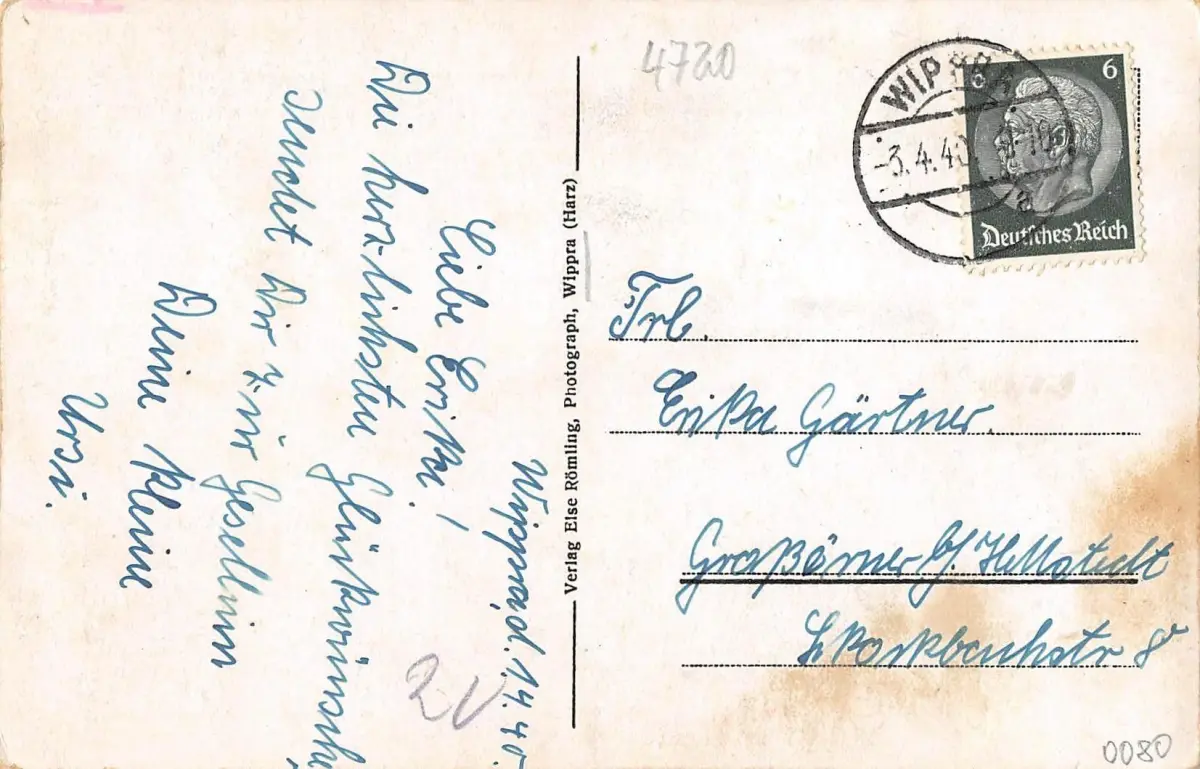 Wippra, d. 1.4.40.
Liebe Erika!
Die herzlichsten Glückwünsche
sendet Dir zur Gesellin
Deine kleine
Ursi.
2
Verlag Else Römling, Photograph, Wippra (Harz)
4720
WIPPRA
-3.4.40.
a
6 6
Deutsches Reich
Frl.
Erika Gärtner.
Großörner b/ Hettstedt
8
0080